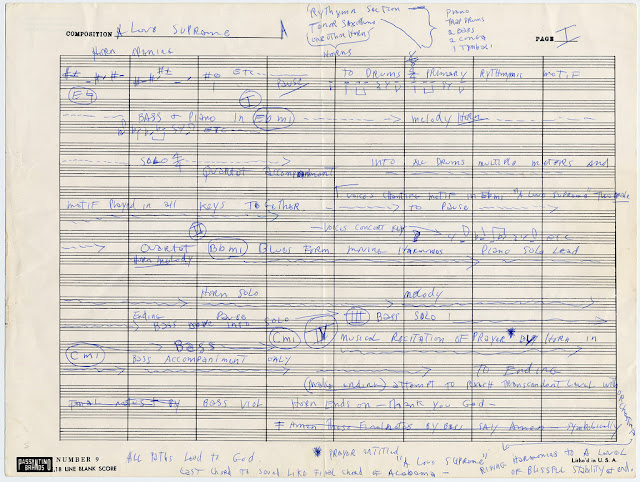 COMPOSITION A Love Supreme
Rythym Section -
Tenor Saxophone
one other horn
Horns
Piano
Trap Drums
2 Bass
2 Conga
1 Tymbal
PAGE I
Horn
ETC
Pause
TO DRUMS Primary Rythmic motif
E4
I
BASS & Piano in Eb mi
melody Horn
ETC
SOLO
Quartet Accompaniment
INTO ALL DRUMS multiple meters and
Voices chanting motif in Ebmi "A Love Supreme"
motif Played in all Keys Together
TO PAUSE
II
Voices Concert Key
etc
Quartet Bbmi Blues Form moving Harmonies Piano Solo Lead
Horn melody
Horn SOLO
melody
Ending Pause
BASS INTO SOLO
III BASS SOLO
BASS
Cmi
IV
Musical Recitation of Prayer by Horn in
Cmi
Bass Accompaniment only
To Ending
(make ending) attempt to reach transcendent level with
BY BASS VIOL
Horn Ends on - Thank you God -
Amen Those Final notes By Bass SAY Amen - Symbolically
PASSANTINO BRANDS
NUMBER 9
18 LINE BLANK SCORE
ALL Paths Lead to God.
Last Chord to sound like Final chord of Alabama -
* Prayer entitled
"A Love Supreme"
Harmonies to A Level
of Blissful Stability at end.
Litho'd in U.S.A.